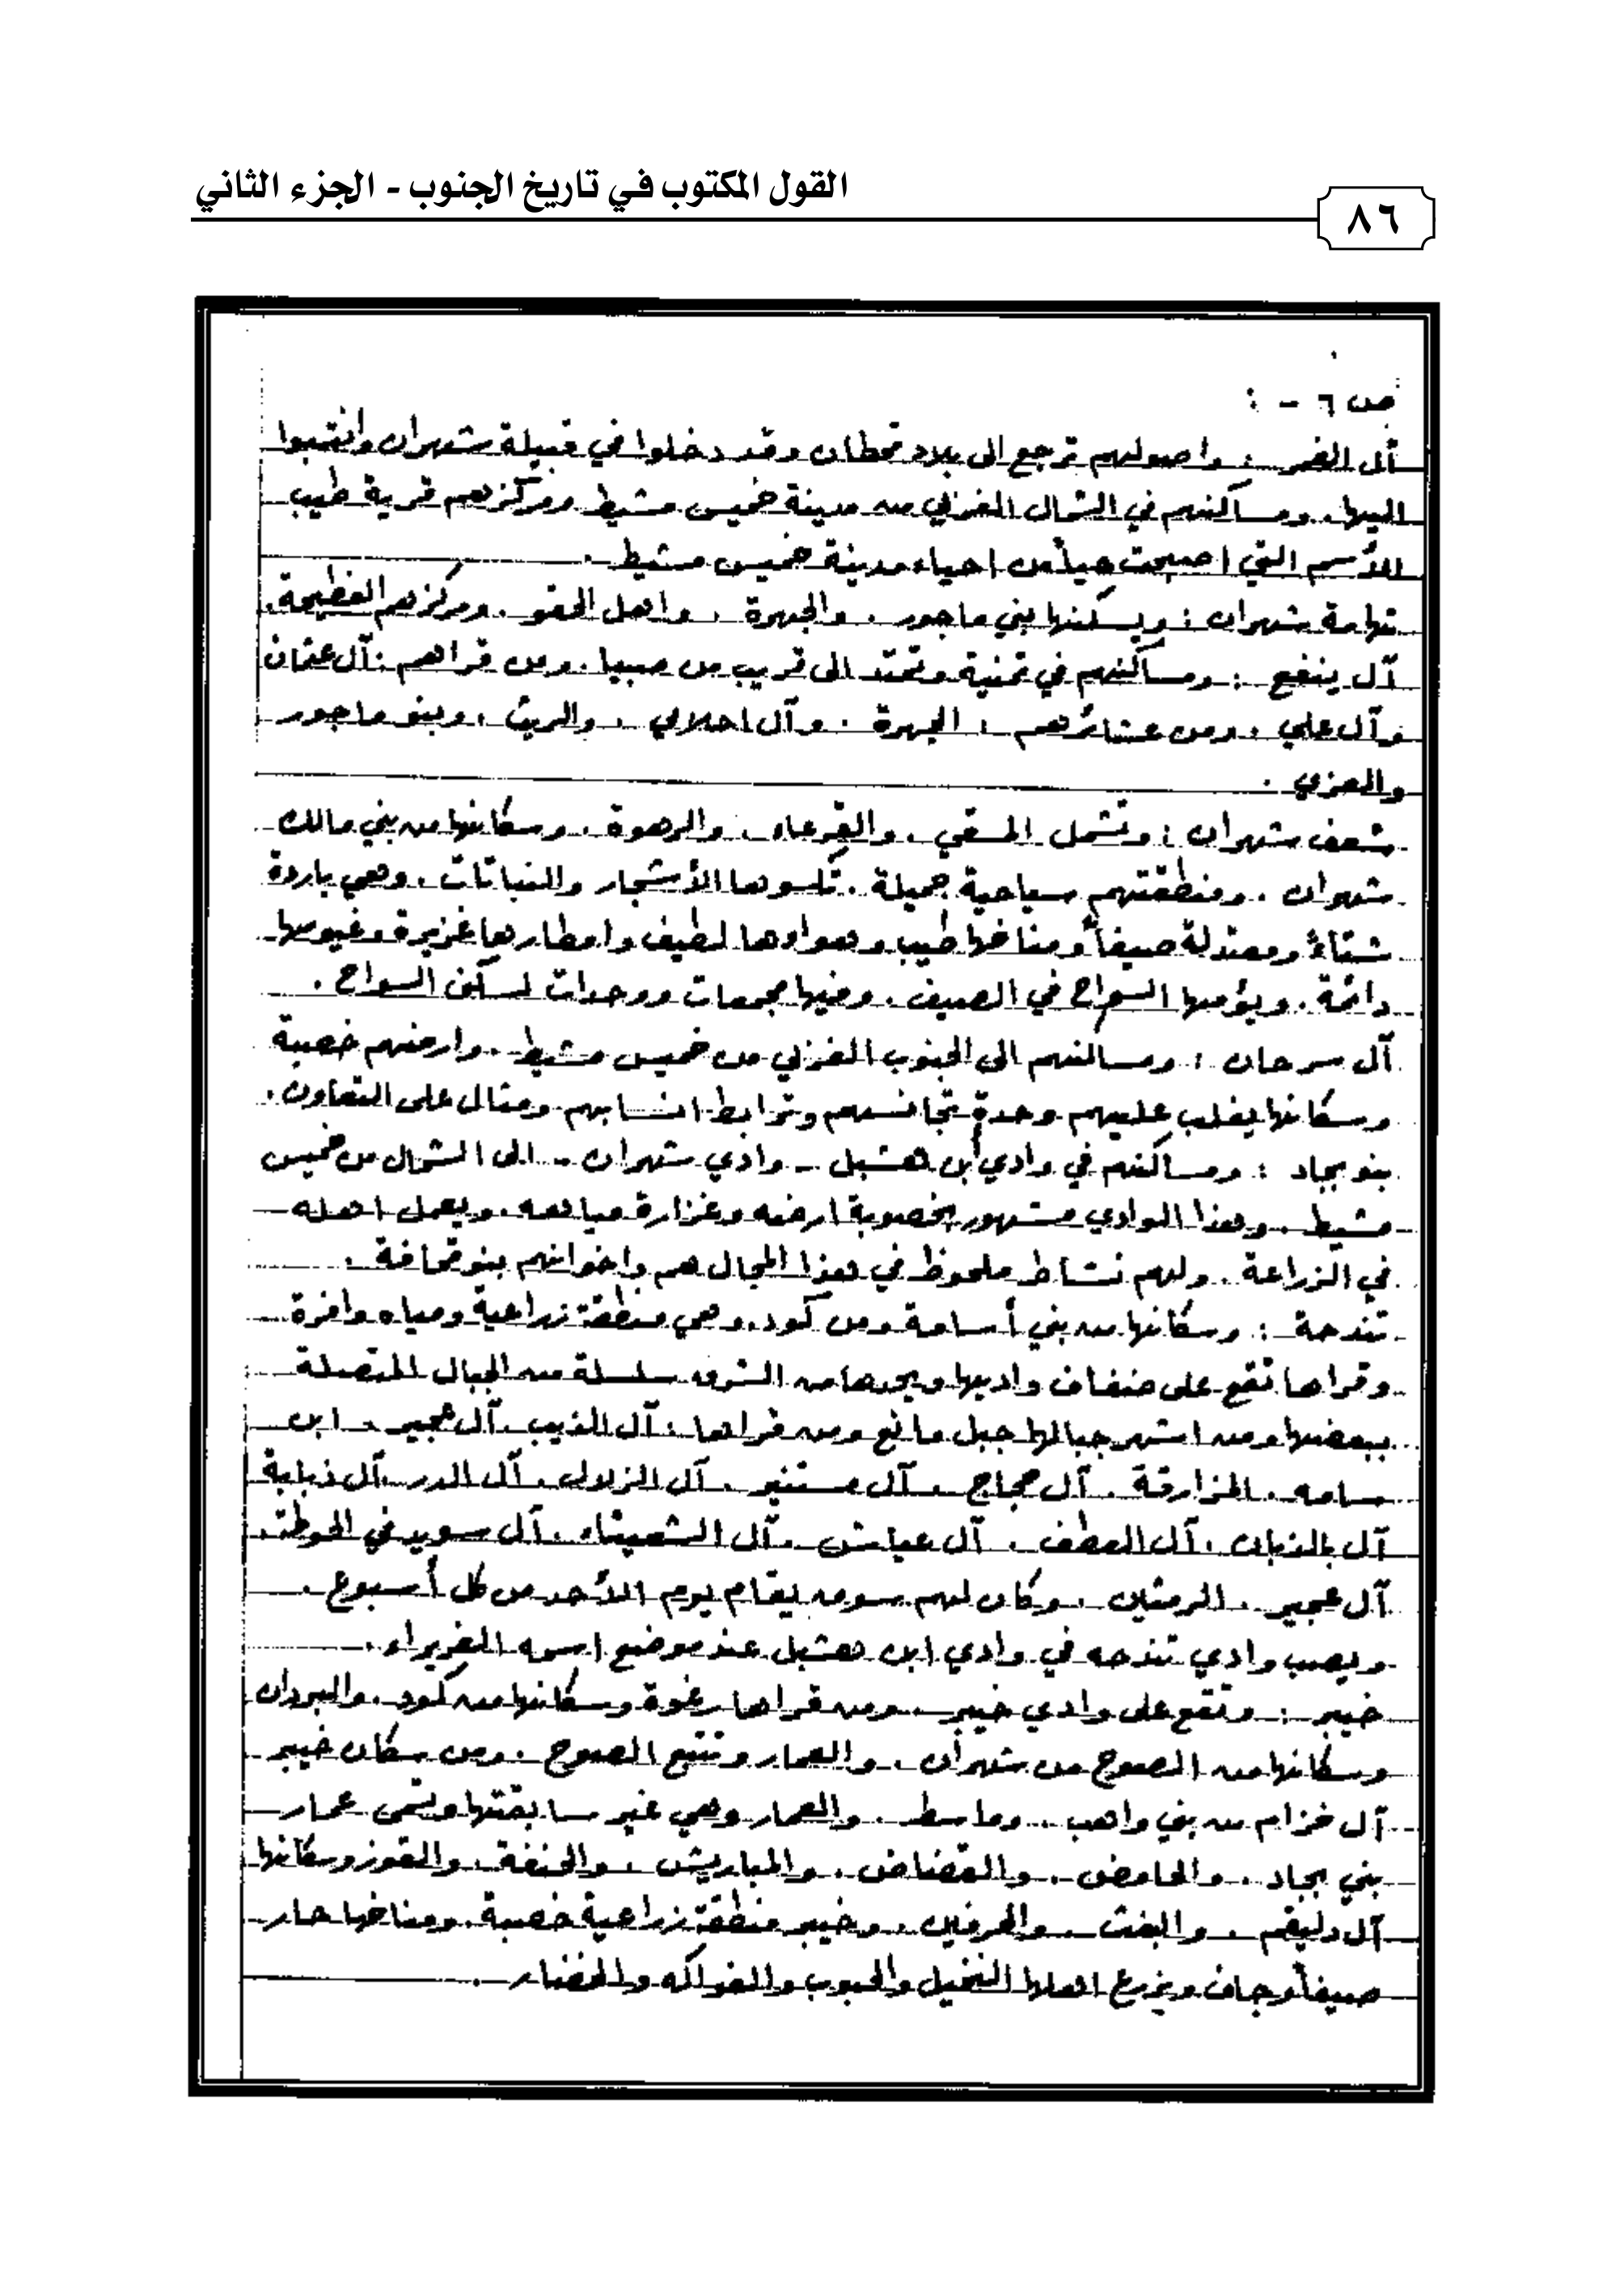 القول المكتوب في تاريخ الجنوب - الجزء الثاني
٨٦
ص ٦ - :
آل الغمر : واصولهم ترجع الى بلاد قحطان وقد دخلوا في قبيلة شهران وانتسبوا
اليها . ومساكنهم في الشمال الغربي من مدينة خميس مشيط ومركزهم قرية طيب
الأسم التي اصبحت حياً من احياء مدينة خميس مشيط .
تهامة شهران : ويسكنها بني ماجور . والجهرة . واهل الحقو . ومركزهم الفطيحة .
آل ينفع : ومساكنهم في تمنية وتمتد الى قريب من صبيا . ومن قراهم : آل عثمان
وآل علي . ومن عشائرهم : الجهرة . وآل احلامي . والريث . وبنو ماجور
والعزي .
شعف شهران : وتشمل المسقي . والقرعاء . والرهوة . وسكانها من بني مالك
شهران . ومنطقتهم سياحية جميلة . تكسوها الأشجار والنباتات . وهي باردة
شتاءً ومعتدلة صيفاً ومناخها طيب وهواؤها لطيف وامطارها غزيرة وغيومها
دائمة . ويؤمها السواح في الصيف . وفيها مجمعات ووحدات لسكن السواح .
آل سرحان : ومساكنهم الى الجنوب الغربي من خميس مشيط . وارضهم خصبة
وسكانها يغلب عليهم وحدة تجانسهم وترابط انسابهم ومثال على التعاون .
بنو بجاد : ومساكنهم في وادي أبن هشبل - وادي شهران - الى الشمال من خميس
مشيط . وهذا الوادي مشهور بخصوبة ارضه وغزارة مياهه . ويعمل اهله
في الزراعة . ولهم نشاط ملحوظ في هذا المجال هم واخوانهم بنو قحافة .
تندحة : وسكانها من بني أسامة ومن كود . وهي منطقة زراعية ومياه وافرة
وقراها تقع على ضفاف واديها ويحدها من الشرق سلسلة من الجبال المتصلة
ببعضها ومن اشهر جبالها جبل مانع ومن قراها : آل الذيب . آل عجير . ابن
سامه . المزارقة . آل حجاج . آل مستنير . آل الزلال . آل الدر . آل ذبابة
آل بالذبان . آل العطف . آل عياش . آل الشعيثاء . آل سويد في الحوطة .
آل عجير . الرمثين . وكان لهم سوق يقام يوم الأحد من كل أسبوع .
ويصب وادي تندحه في وادي ابن هشبل عند موضع اسمه الغريراء .
خيبر : وتقع على وادي خيبر . ومن قراها رغوة وسكانها من كود . والبردان
وسكانها من الصعوج من شهران . والعمار وتتبع الصعوج . ومن سكان خيبر
آل خزام من بني واهب . وماسط . والعمار وهي غير سابقتها وتسمى عمار
بني بجاد . والحامض . والقضاض . والمباريش . والخنفة . والقوز وسكانها
آل دليقم . والبغث . والحرفين . وخيبر منطقة زراعية خصبة . ومناخها حار
صيفاً وجاف ويزرع اهلها النخيل والحبوب والفواكه والخضار .